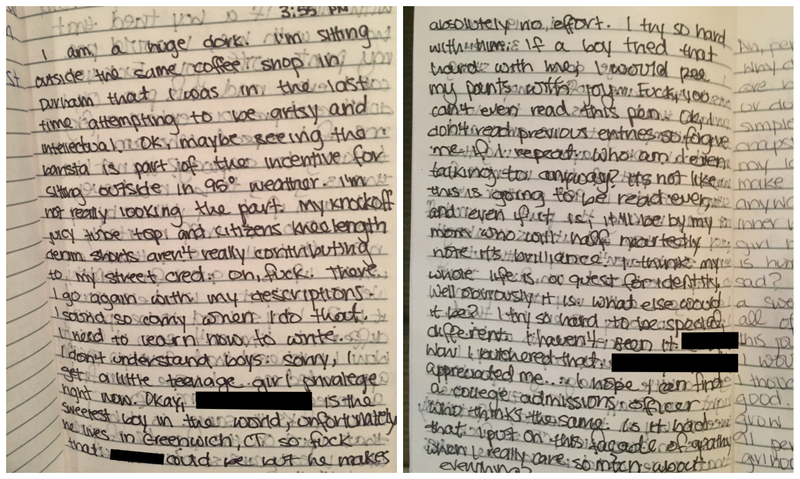 3:55 PM
I am a huge dork. I'm sitting
outside the same coffee shop in
Durham that I was in the last
time attempting to be artsy and
intellectual. OK maybe seeing the
barista is part of the incentive for
sitting outside in 95° weather. I'm
not really looking the part. My knockoff
juicy tube top and citizens knee length
denim shorts aren't really contributing
to my street cred. Oh, fuck. There
I go again with my descriptions.
I sound so corny when I do that.
I need to learn how to write.
I don't understand boys. Sorry, I
get a little teenage girl privalege
right now. Okay, is the
sweetest boy in the world, unfortunately
he lives in Greenwich, CT so fuck
that. could be but he makes
absolutely no effort. I try so hard
with him. If a boy tried that
hard with me, I would pee
my pants with joy. Fuck, you
can't even read this pen. Ok, I
don't read previous entries so forgive
me if I repeat. Who am I even
talking to anyway? It's not like
this is going to be read ever,
and even if it is it'll be by my
mom who will half heartedly
note it's brilliance. I think my
whole life is a quest for identity.
Well obviously it is what else would
it be? I try so hard to be special,
different. I haven't seen it.
Wow I butchered that.
appreciated me... I hope I can find
a college admissions officer
who thinks the same. Is it bad
that I put on this facade of apathy
when I really care so much about
everything?